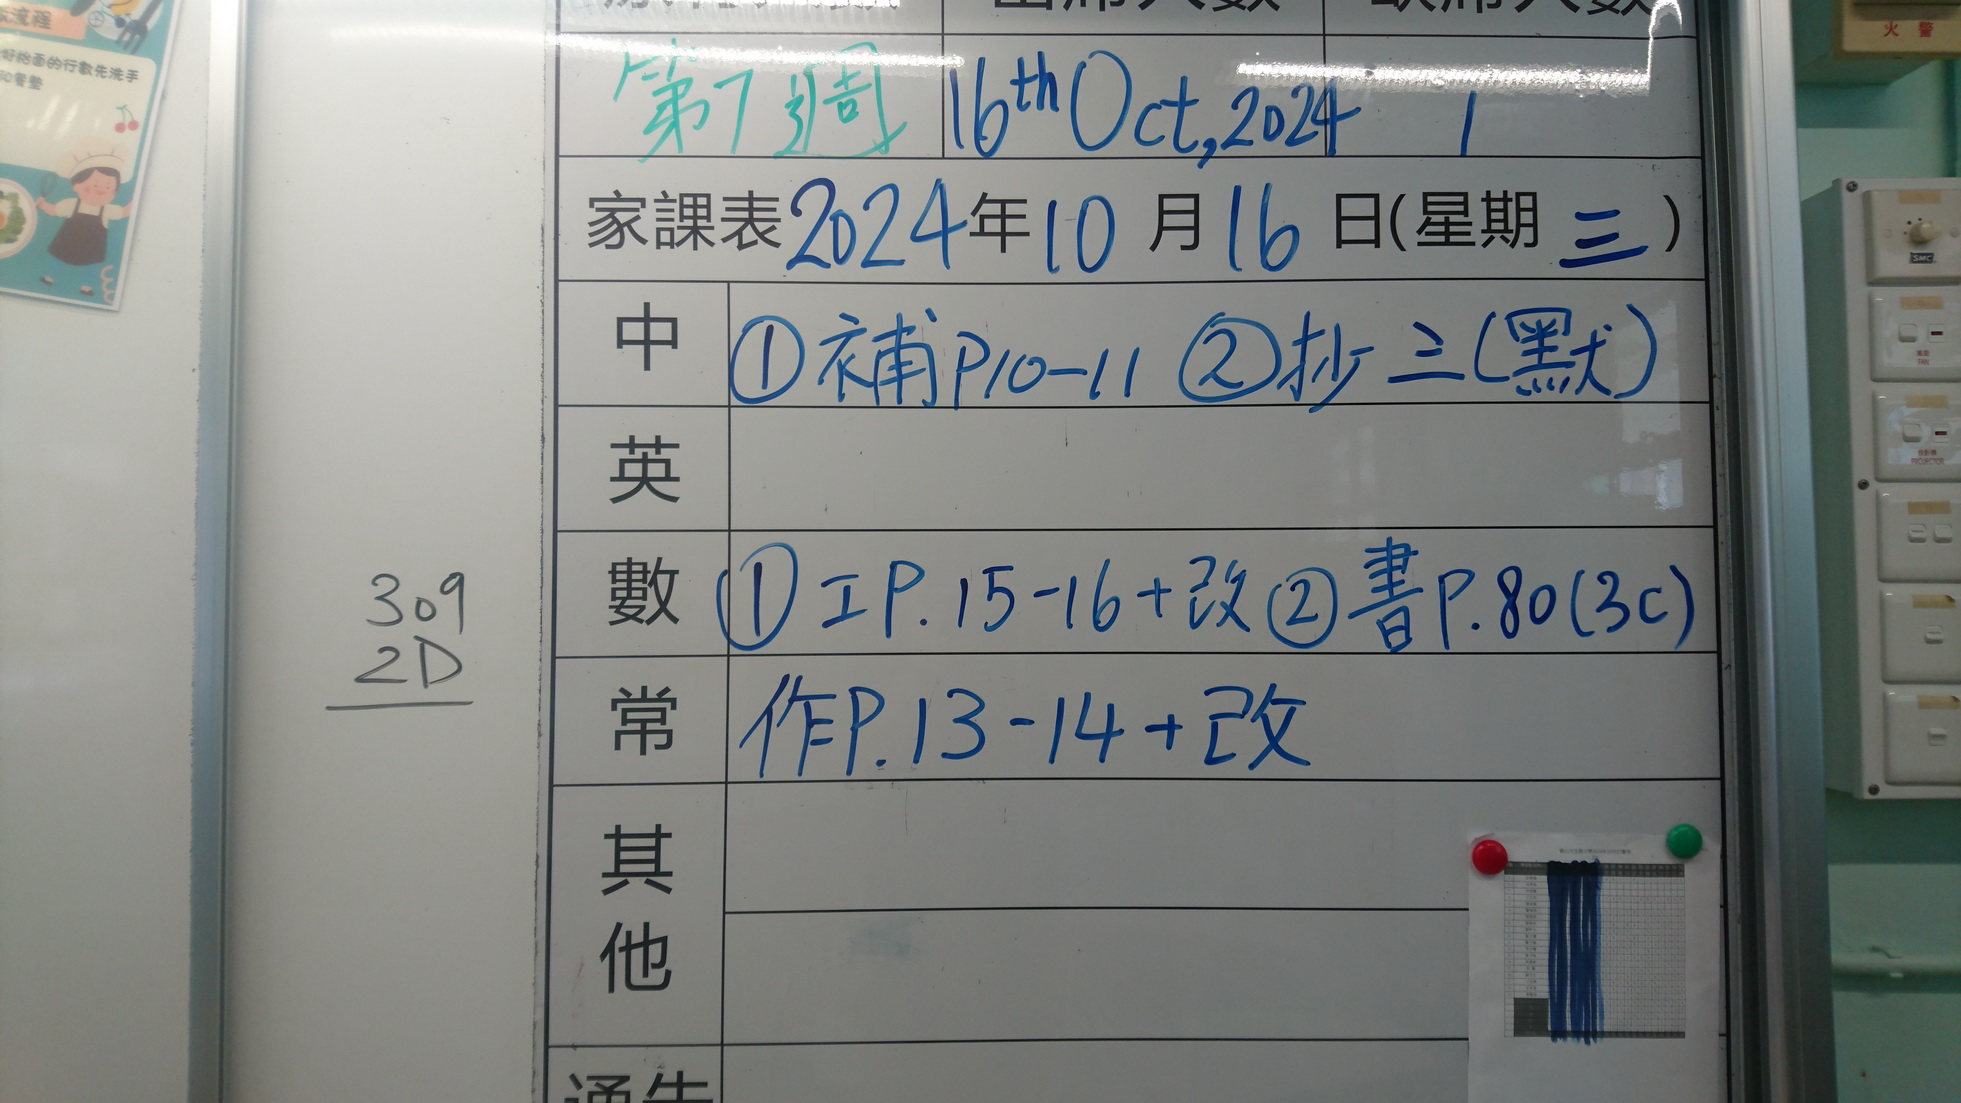 流程
好枱面的行動先洗手
和餐墊
出席人數 缺席人數
火 警
第7週 16th Oct, 2024 1
家課表2024年10月16日(星期三)
中 ①補P10-11 ②抄二(默)
英
數 ①工P.15-16+改②書P.80(3C)
常 作P.13-14+改
其
他
通告
309
2D
SMC
FAN
PROJECTOR